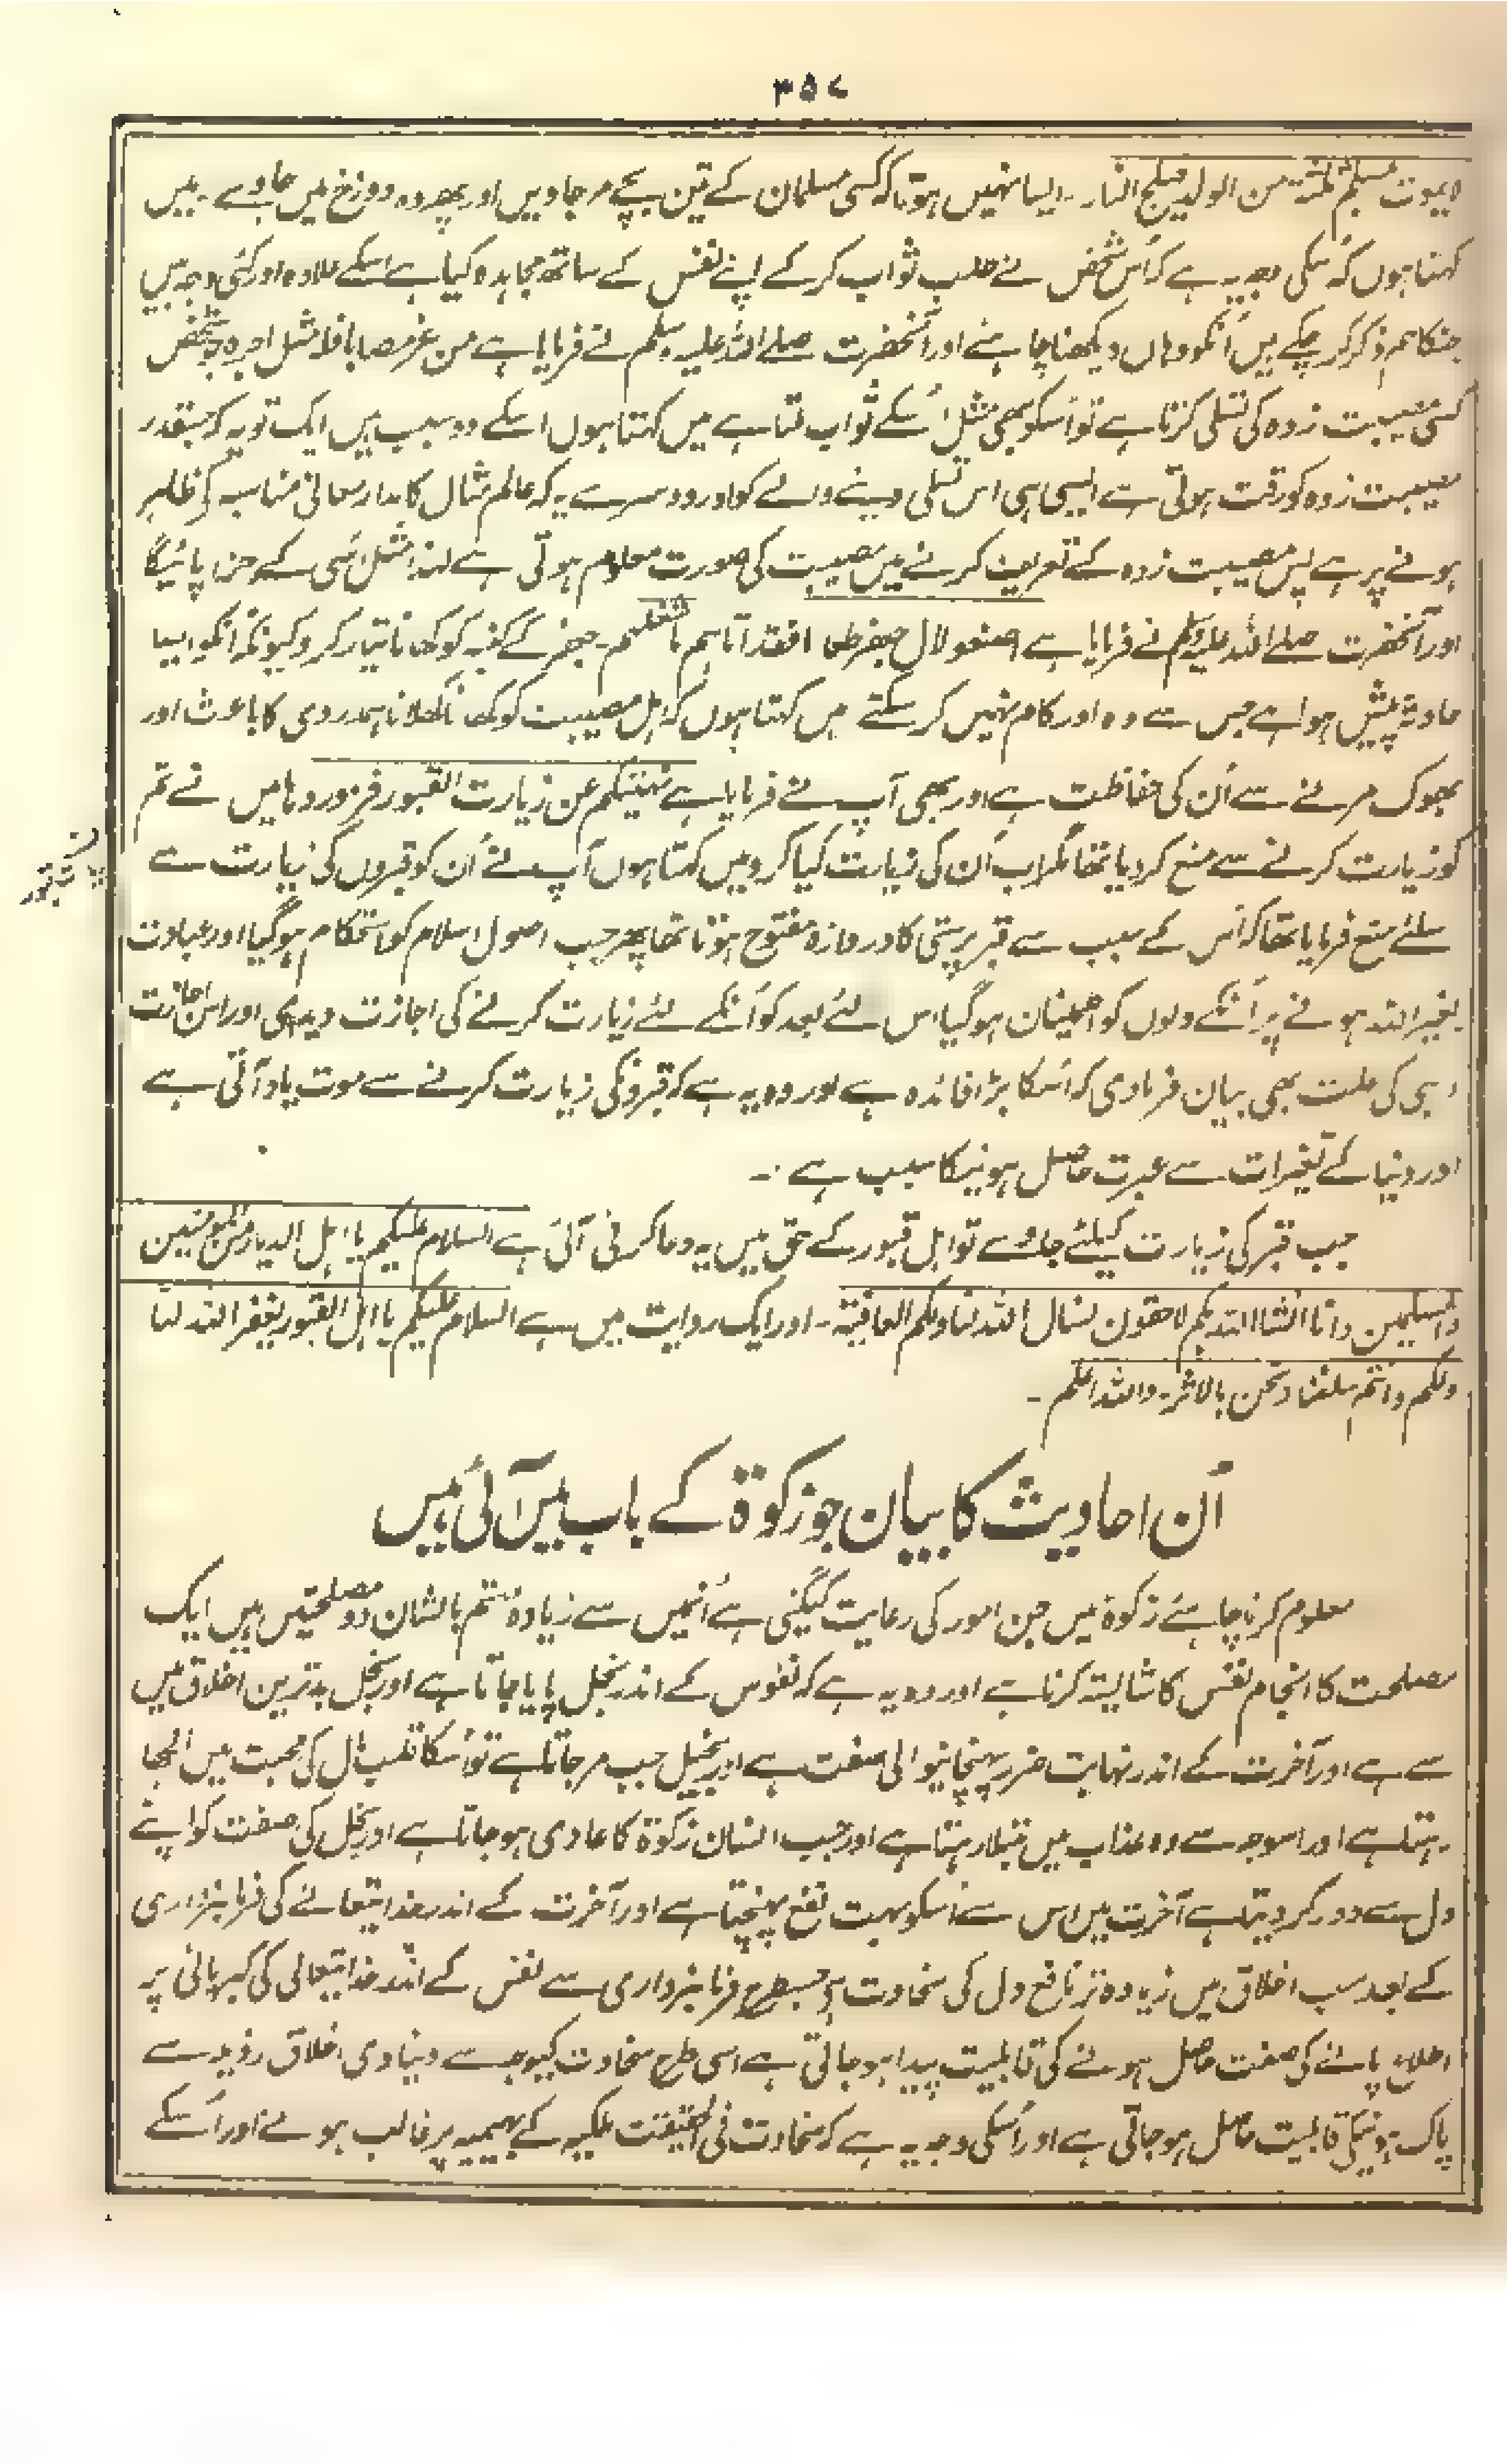 ۳۵۷
لا یموت لمسلم ثلثۃ من الولد فیلج النار۔ ایسا نہیں ہوتا کہ کسی مسلمان کے تین بچے مر جاویں اور پھر وہ دوزخ میں جاوے۔ میں
کہتا ہوں کہ اسکی وجہ یہ ہے کہ اُس شخص نے طلب ثواب کر کے اپنے نفس کے ساتھ مجاہدہ کیا ہے اسکے علاوہ اور کئی وجہ ہیں
جنکا ہم ذکر کر چکے ہیں اُنکو وہاں دیکھنا چاہئے اور آنحضرت صلے اللہ علیہ وسلم نے فرمایا ہے من عزمصابا فلہ مثل اجرہ جو شخص
کسی مصیبت زدہ کی تسلی کرتا ہے تو اُسکو بھی مثل اُسکے ثواب ملتا ہے میں کہتا ہوں اسکے دو سبب ہیں ایک تو یہ کہ جسقدر
مصیبت زدہ کو رقت ہوتی ہے ایسی ہی اس تسلی دینے والے کو اور دوسرے یہ کہ عالم مثال کا مدار معانی مناسبہ کے ظاہر
ہونے پر ہے پس مصیبت زدہ کے تعریف کرنے میں مصیبت کی صورت معلوم ہوتی ہے لہذا مثل اُسی کے جزا پائیگا
اور آنحضرت صلے اللہ علیہ وسلم نے فرمایا ہے اصنعوا لال جعفر طعاما فقد اتاہم ما شغلہم۔ جعفر کے کنبہ کو کھانا تیار کرو کیونکہ انکو ایسا
حادثہ پیش ہوا ہے جس سے وہ اور کام نہیں کر سکتے میں کہتا ہوں کہ اہل مصیبت کو کھانا کھلانا ہمدردی کا باعث اور
بھوک مرنے سے اُن کی حفاظت ہے اور بھی آپ نے فرمایا ہے نہیتکم عن زیارت القبور فزوروہا میں نے تم
کو زیارت کرنے سے منع کر دیا تھا مگر اب اُن کی زیارت کیا کرو میں کہتا ہوں آپ نے اُن کو قبروں کی زیارت سے
سلئے منع فرمایا تھا کہ اُس کے سبب سے قبر پرستی کا دروازہ مفتوح ہوتا تھا پھر جب اصول اسلام کو استحکام ہو گیا اور عبادت
بغیر اللہ ہونے پر اُنکے دلوں کو اطمینان ہو گیا اس لئے بعد کو اُنکے لئے زیارت کرنے کی اجازت دیدی اور اس اجازت
ہی کی علت بھی بیان فرمادی کہ اُسکا بڑا فائدہ ہے اور وہ یہ ہے کہ قبرونکی زیارت کرنے سے موت یاد آتی ہے
اور دنیا کے تغیرات سے عبرت حاصل ہونیکا سبب ہے۔
جب قبر کی زیارت کیلئے جاوے تو اہل قبور کے حق میں یہ دعا کرنی آئی ہے السلام علیکم یا اہل الدیار من المومنین
والمسلمین وانا انشا اللہ بکم لاحقون نسال اللہ لنا ولکم العافیۃ۔ اور ایک روایت میں ہے السلام علیکم یا اہل القبور یغفر اللہ لنا
ولکم وانتم سلفنا ونحن بالاثر۔ واللہ اعلم۔
اُن احادیث کا بیان جو زکوۃ کے باب میں آئی ہیں
معلوم کرنا چاہئے زکوۃ میں جن امور کی رعایت کیگئی ہے اُنمیں سے زیادہ مہتم بالشان دو مصلحتیں ہیں ایک
مصلحت کا انجام نفس کا شایستہ کرنا ہے اور وہ یہ ہے کہ نفوس کے اندر بخل پایا جاتا ہے اور بخل بدترین اخلاق میں
سے ہے اور آخرت کے اندر نہایت ضرر پہنچانیوالی صفت ہے اور بخیل جب مر جاتا ہے تو اُسکا قلب مال کی محبت میں اُلجھا
رہتا ہے اور اسوجہ سے وہ عذاب میں مبتلا رہتا ہے اور جب انسان زکوۃ کا عادی ہو جاتا ہے اور بخل کی صفت کو اپنے
دل سے دور کر دیتا ہے آخرت میں اس سے اُسکو بہت نفع پہنچتا ہے اور آخرت کے اندر خدا یتعالے کی فرمانبرداری
کے بعد سب اخلاق میں زیادہ تر نافع دل کی سخاوت ہے جسطرح فرمانبرداری سے نفس کے اندر خدا یتعالی کی کبریائی پر
اطلاع پانے کی صفت حاصل ہونے کی قابلیت پیدا ہو جاتی ہے اسی طرح سخاوت کیوجہ سے دنیاوی اخلاق رذیلہ سے
پاک ہونیکی قابلیت حاصل ہو جاتی ہے اور اُسکی وجہ یہ ہے کہ سخاوت فی الحقیقت ملکیہ کے بہیمیہ پر غالب ہونے اور اُسکے